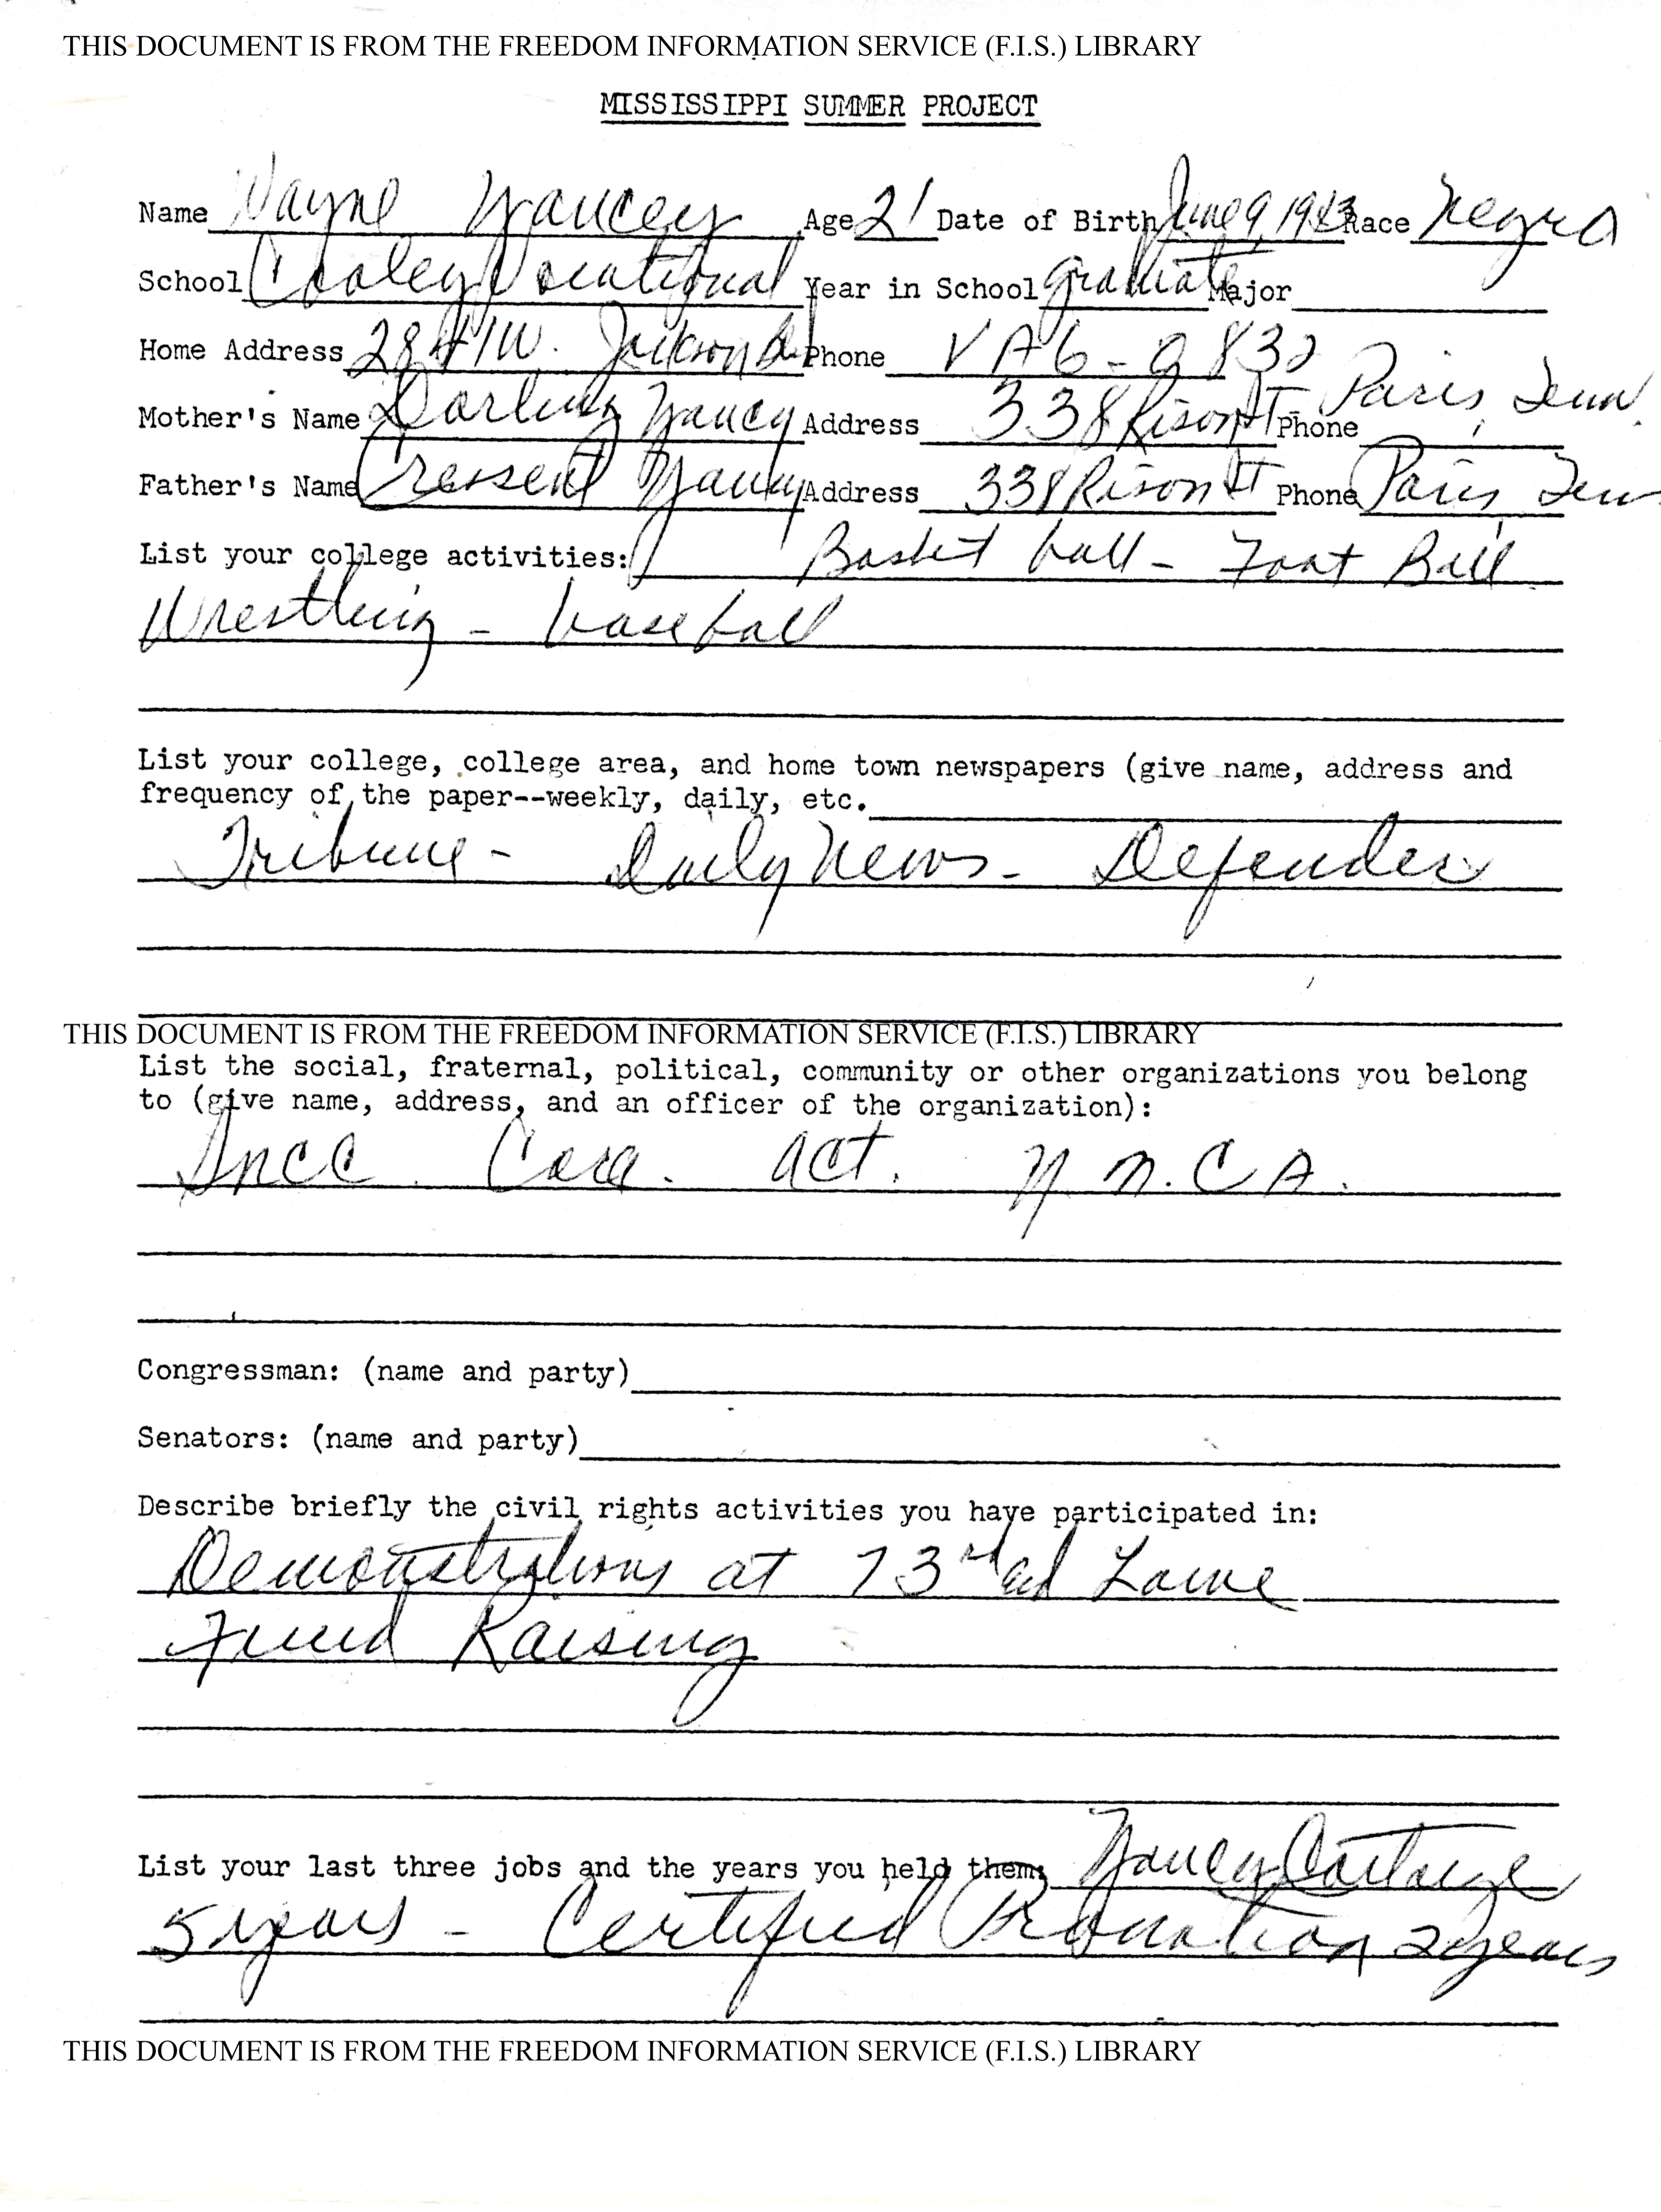 THIS DOCUMENT IS FROM THE FREEDOM INFORMATION SERVICE (F.I.S.) LIBRARY
MISSISSIPPI SUMMER PROJECT
Name Wayne Yancey Age 21 Date of Birth June 9, 1943 Race Negro
School Cooley Vocational Year in School graduate Major
Home Address 2841 W. Jackson Bl. Phone VA6-2832
Mother's Name Darling Yancy Address 338 Rison St - Phone Paris, Tenn.
Father's Name Cressent Yancy Address 338 Rison St Phone Paris Tenn
List your college activities: Basket ball - Foot Ball
Wrestling - baseball
List your college, college area, and home town newspapers (give name, address and
frequency of the paper--weekly, daily, etc.
Tribune - Daily News - Defender
THIS DOCUMENT IS FROM THE FREEDOM INFORMATION SERVICE (F.I.S.) LIBRARY
List the social, fraternal, political, community or other organizations you belong
to (give name, address, and an officer of the organization):
Sncc. Core. act. Y.M.C.A.
Congressman: (name and party)
Senators: (name and party)
Describe briefly the civil rights activities you have participated in:
Demonstrations at 73rd ad Lowe
Fund Raising
List your last three jobs and the years you held them: Yancy Cartage
5 years - Certified 2 years
THIS DOCUMENT IS FROM THE FREEDOM INFORMATION SERVICE (F.I.S.) LIBRARY